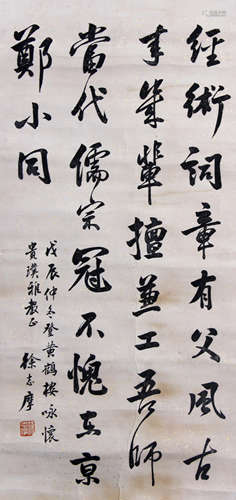 經術詞章有父風古
來幾輩擅兼工吾師
當代儒宗冠不愧東京
鄭小同
戊辰仲冬登黃鶴樓咏懷
貴璞雅教正
徐志摩